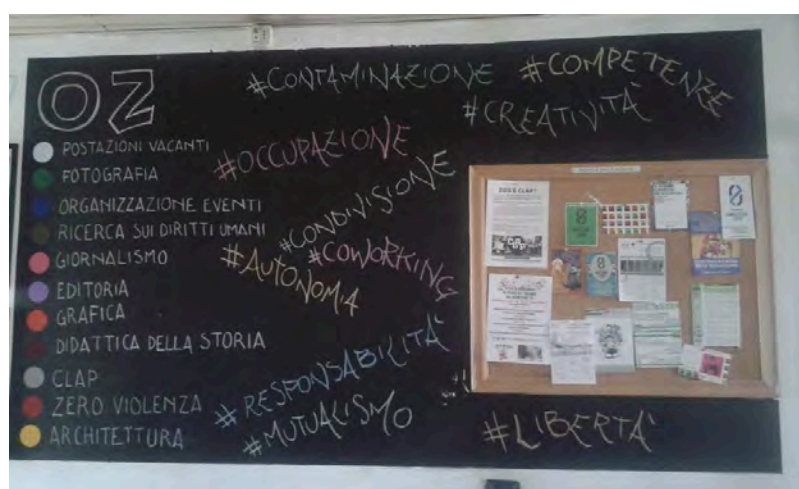 OZ
POSTAZIONI VACANTI
FOTOGRAFIA
ORGANIZZAZIONE EVENTI
RICERCA SUI DIRITTI UMANI
GIORNALISMO
EDITORIA
GRAFICA
DIDATTICA DELLA STORIA
CLAP
ZERO VIOLENZA
ARCHITETTURA
#CONTAMINAZIONE
#COMPETENZE
#CREATIVITÀ
#OCCUPAZIONE
#CONDIVISIONE
#COWORKING
#AUTONOMIA
#RESPONSABILITÀ
#MUTUALISMO
#LIBERTÀ
COS'È CLAP?